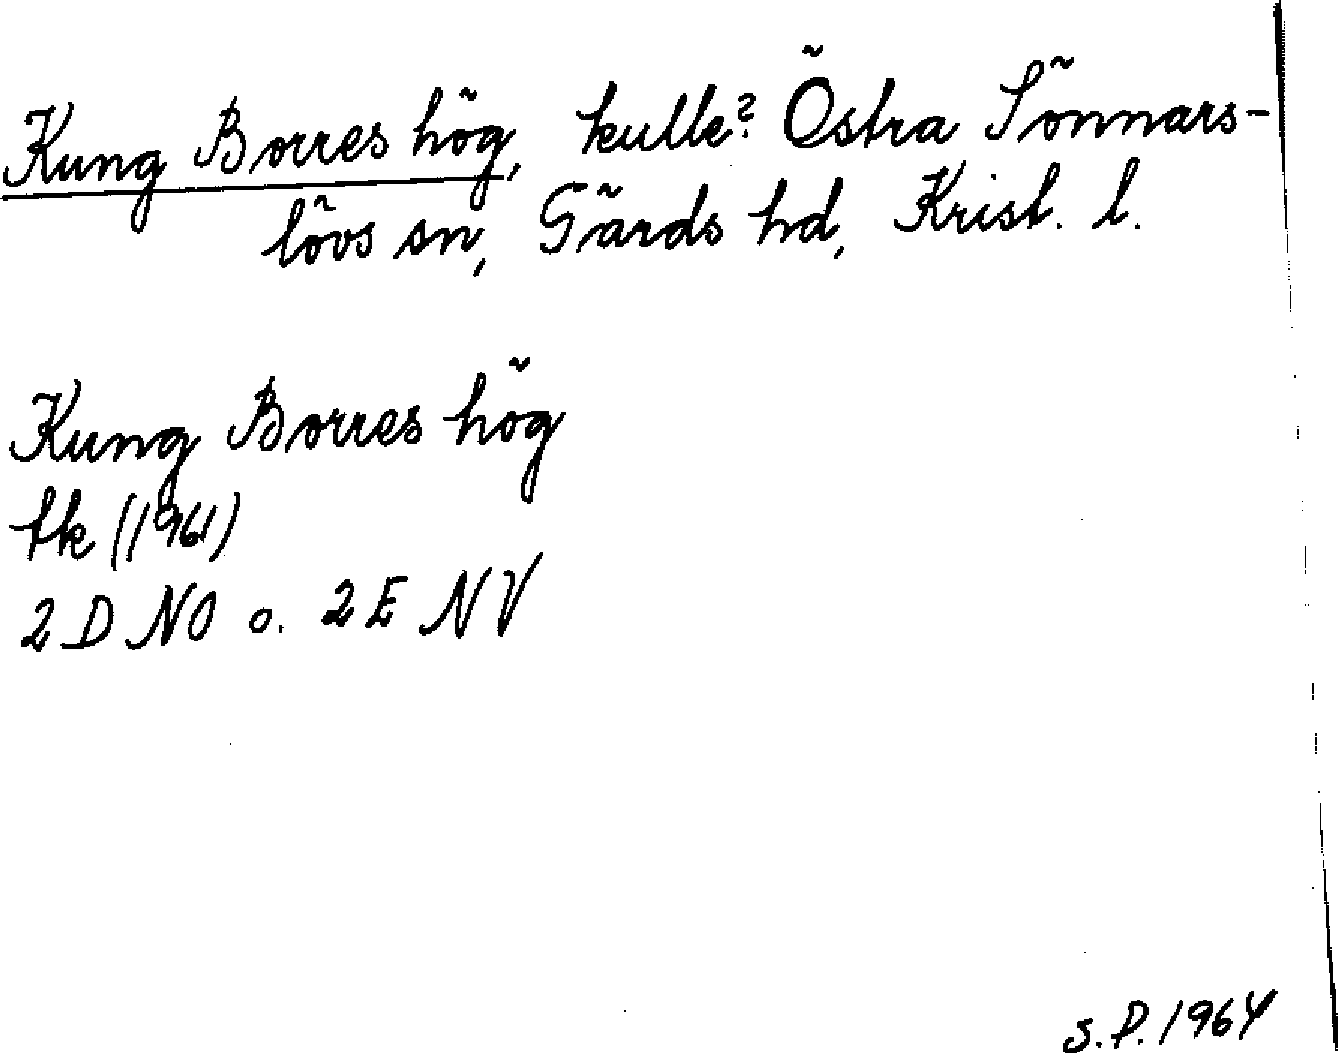 Kung Borres hög, kulle? Östra Sönnars-
lövs sn, Gärds hd, Krist. l.
Kung Borres hög
tk (1961)
2D NO o. 2E NV
S.P. 1964